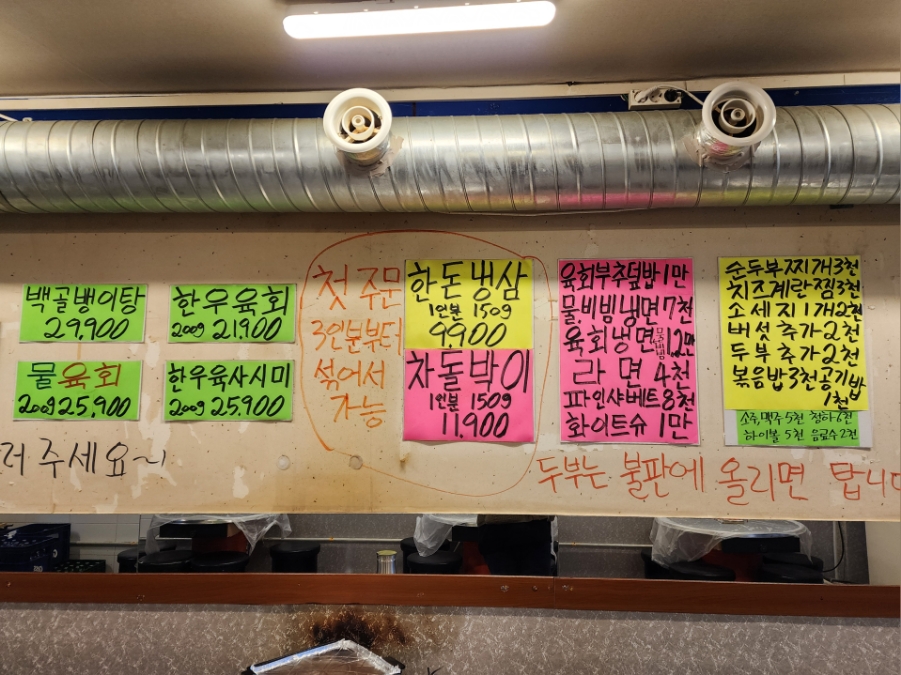 백골뱅이탕
29,900
한우육회
200g 21,900
물육회
200g 25,900
한우육사시미
200g 25,900
러 주세요~!
첫 주문
3인분부터
섞어서
가능
한돈냉삼
1인분 150g
9,900
차돌박이
1인분 150g
11,900
육회부추덮밥 1만
물비빔냉면 7천
육회냉면 물비빔 1.2만
라면 4천
파인샤베트 8천
화이트슈 1만
순두부찌개 3천
치즈계란찜 3천
소세지 1개 2천
버섯추가 2천
두부추가 2천
볶음밥 3천 공기밥
1천
소주,맥주 5천 청하 6천
하이볼 5천 음료수 2천
두부는 불판에 올리면 탑니다